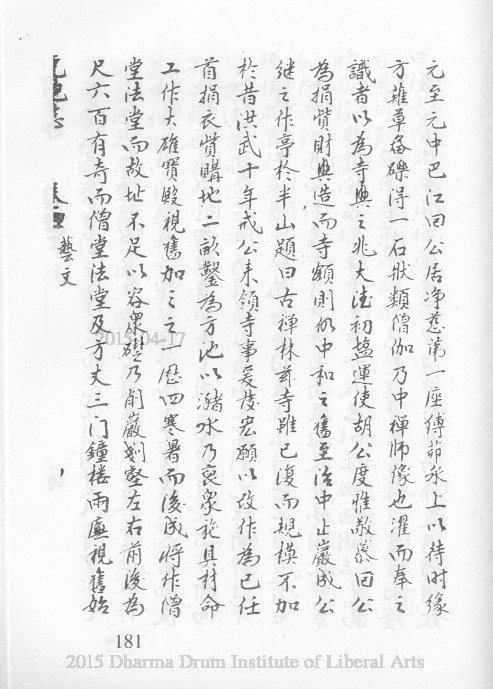 元至元中巴江曰公居净慈第一座縛茆永上以待时缘
方薙草畚礫得一石狀類僧伽乃中禅师像也濯而奉之
識者以為寺興之兆大德初塩運使胡公度惟敬慕曰公
為捐貲財興造而寺額則仍中和之舊至治中止巖成公
继之作亭於半山題曰古禅林茲寺雖已復而規模不加
於昔洪武十年戒公来領寺事爰发宏願以改作為已任
首捐衣貲購地二畝鑿為方池以瀦水乃裒衆施具材命
工作大雄寶殿視舊加三之一歷四寒暑而後成将作僧
堂法堂而故址不足以容衆乃削巖剗壑左右前後為
尺六百有奇而僧堂法堂及方丈三门鐘楼兩廡視舊始
藝文
181
2015-04-17
2015 Dharma Drum Institute of Liberal Arts